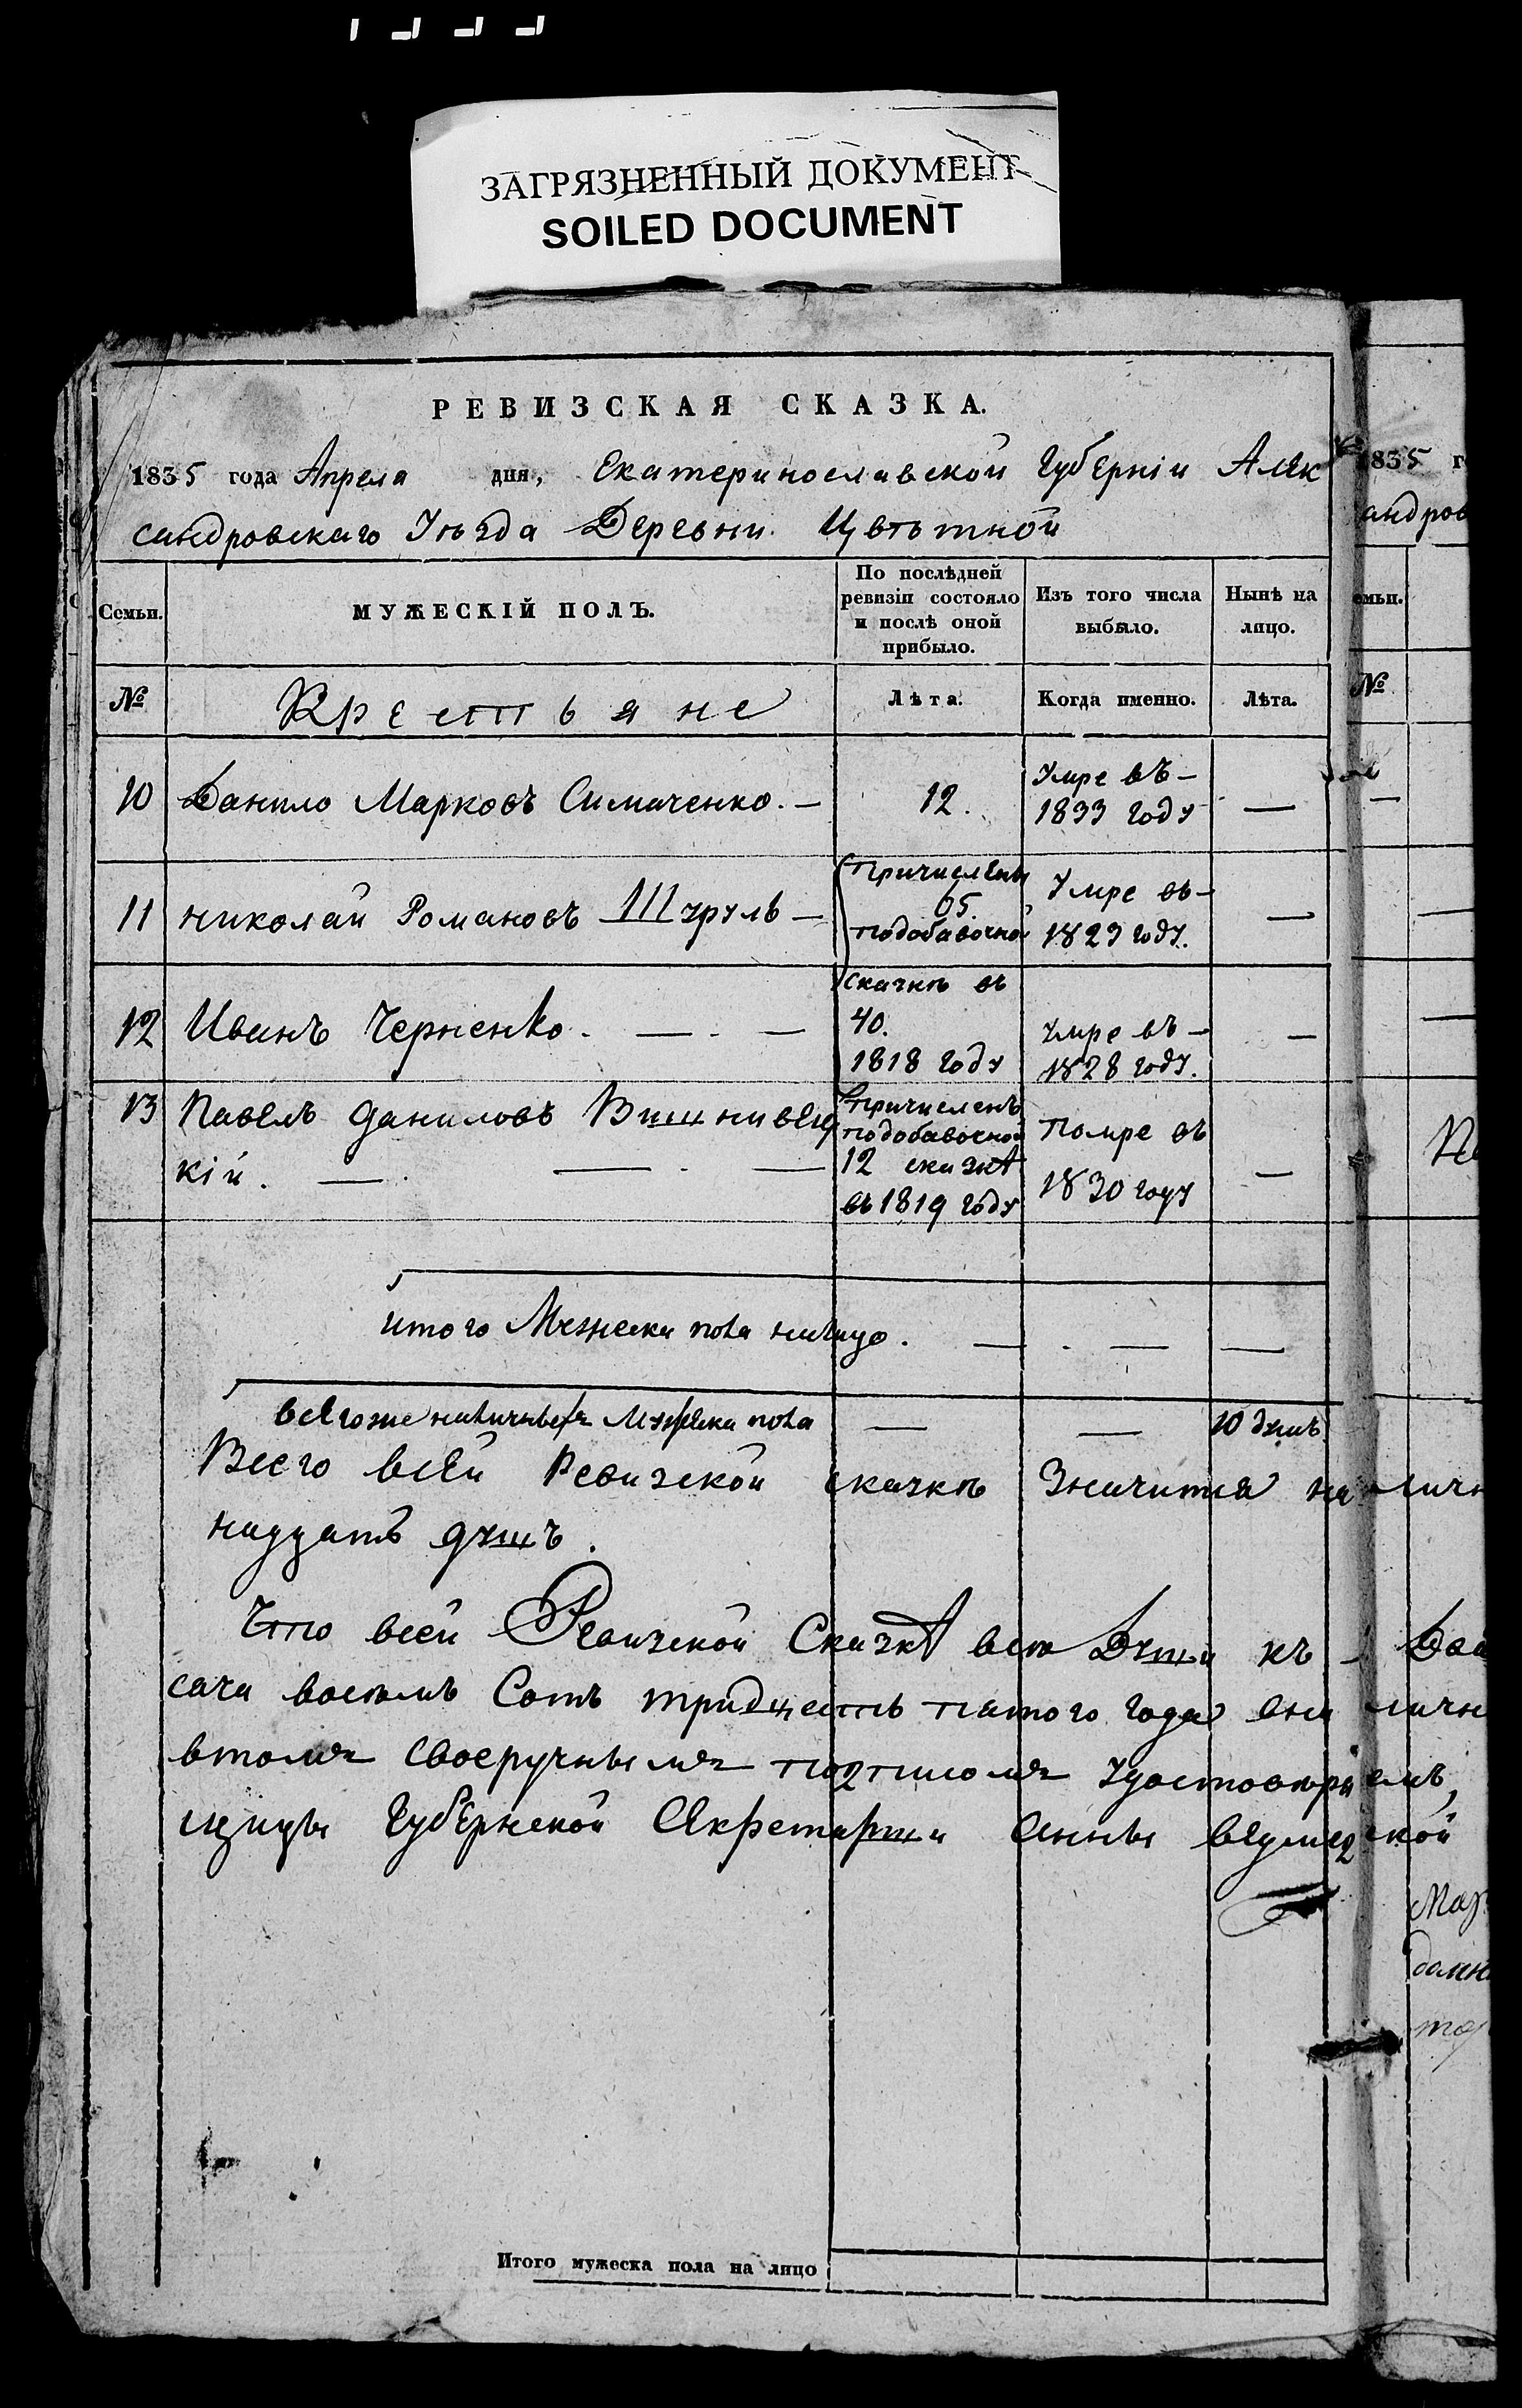 ЗАГРЯЗНЕННЫЙ ДОКУМЕНТ
SOILED DOCUMENT
РЕВИЗСКАЯ СКАЗКА.
1835 года Апреля дня, Екатеринославской Губерніи Алек
сандровскаго Уѣзда Деревни Цвѣтной
Семьи.
МУЖЕСКІЙ ПОЛЪ.
По послѣдней
ревизіи состояло
и послѣ оной
прибыло.
Изъ того числа
выбыло.
Нынѣ на
лицо.
№
Крестьяне
Лѣта.
Когда именно.
Лѣта.
10 Данило Марковъ Симаченко. — 12. Умре въ —
1833 году —
11 николай Романовъ Шуруль —
Причислены
65.
подобавочной
Умре въ —
1829 году. —
12 Иванъ Черненко. — . —
сказкѣ въ
40.
1818 году
Умре въ —
1828 году. —
13 Павелъ Даниловъ Вишнивец
кій. — . — . —
Причисленъ
подобавочной
12 сказкѣ
въ 1819 году
Помре въ
1830 году —
итого Мужеска пола налицо. — . — —
всегоже наличныхъ Мужеска пола — — 10 душъ.
Всего всей Ревизской сказкѣ Значится на личн
надцать душъ.
Что всей Ревизской Сказкѣ всѣ Души къ —
сачи восемъ Сотъ тридцеть пятого года
втомъ своеручнымъ подписомъ удостовѣряемъ,
Губернской Секретарши Анны
Итого мужеска пола на лицо
1835 г
андров
емьи.
№